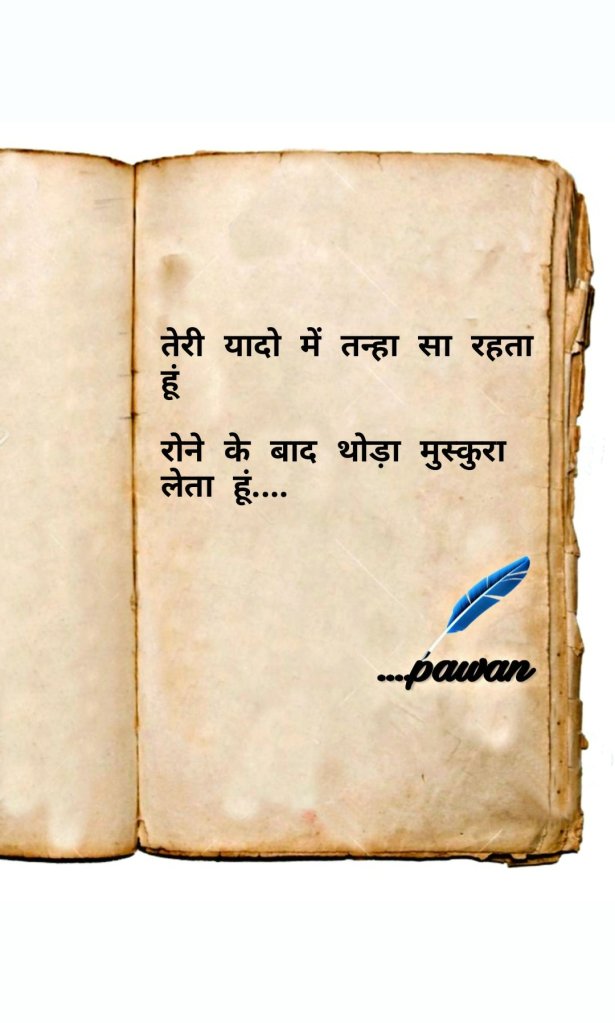 तेरी यादो में तन्हा सा रहता
हूं
रोने के बाद थोड़ा मुस्कुरा
लेता हूं....
....pawan